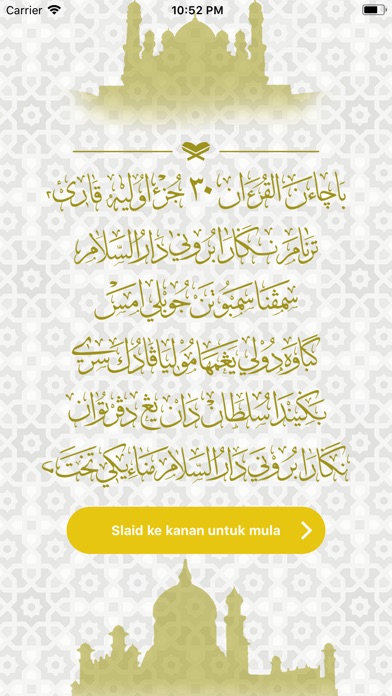 Carrier 10:52 PM
باچاءن القرءان ٣٠ جزء اوليه قارئ٢
ترنام نݢارا بروني دارالسلام
سمڤنا سمبوتن جوبلي امس
کباوه دولي يڠمها موليا ڤادوک سري
بݢيندا سلطان دان يڠ دڤرتوان
نݢارا بروني دارالسلام مناءيکي تخت٢
Slaid ke kanan untuk mula